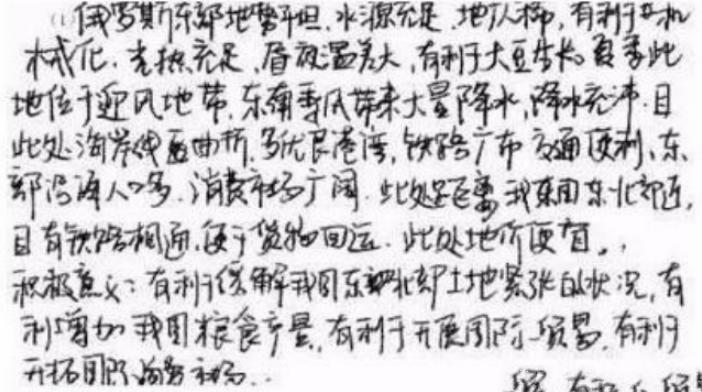 (1)俄罗斯东部地势平坦,水源充足,地广人稀,有利于机
械化.光热充足,昼夜温差大,有利于大豆生长。夏季此
地位于迎风地带,东南季风带来大量降水,降水充沛.且
此处海岸线曲折,多优良港湾,铁路广布交通便利、东
部沿海人口多.消费市场广阔.此处距离我国东北部近,
且有铁路相通,便于货物回运.此处地价便宜。
积极意义:有利于缓解我国东北部土地紧张的状况,有
利增加我国粮食产量,有利于开展国际贸易.有利于
开拓国际消费市场..